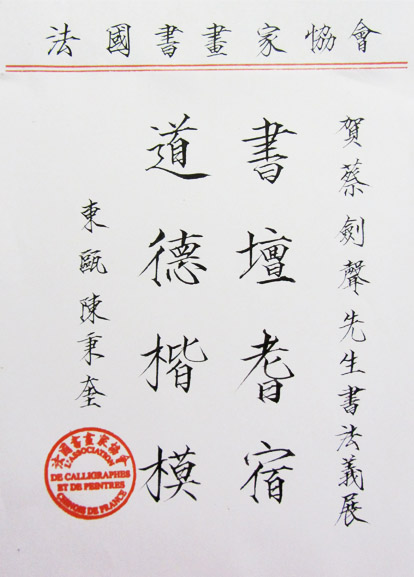 法國書畫家協會
賀蔡劍聲先生書法義展
書壇耆宿
道德楷模
東甌陳秉奎
法國書畫家協會
L'ASSOCIATION
DE CALLIGRAPHES
ET DE PEINTRES
CHINOIS DE FRANCE